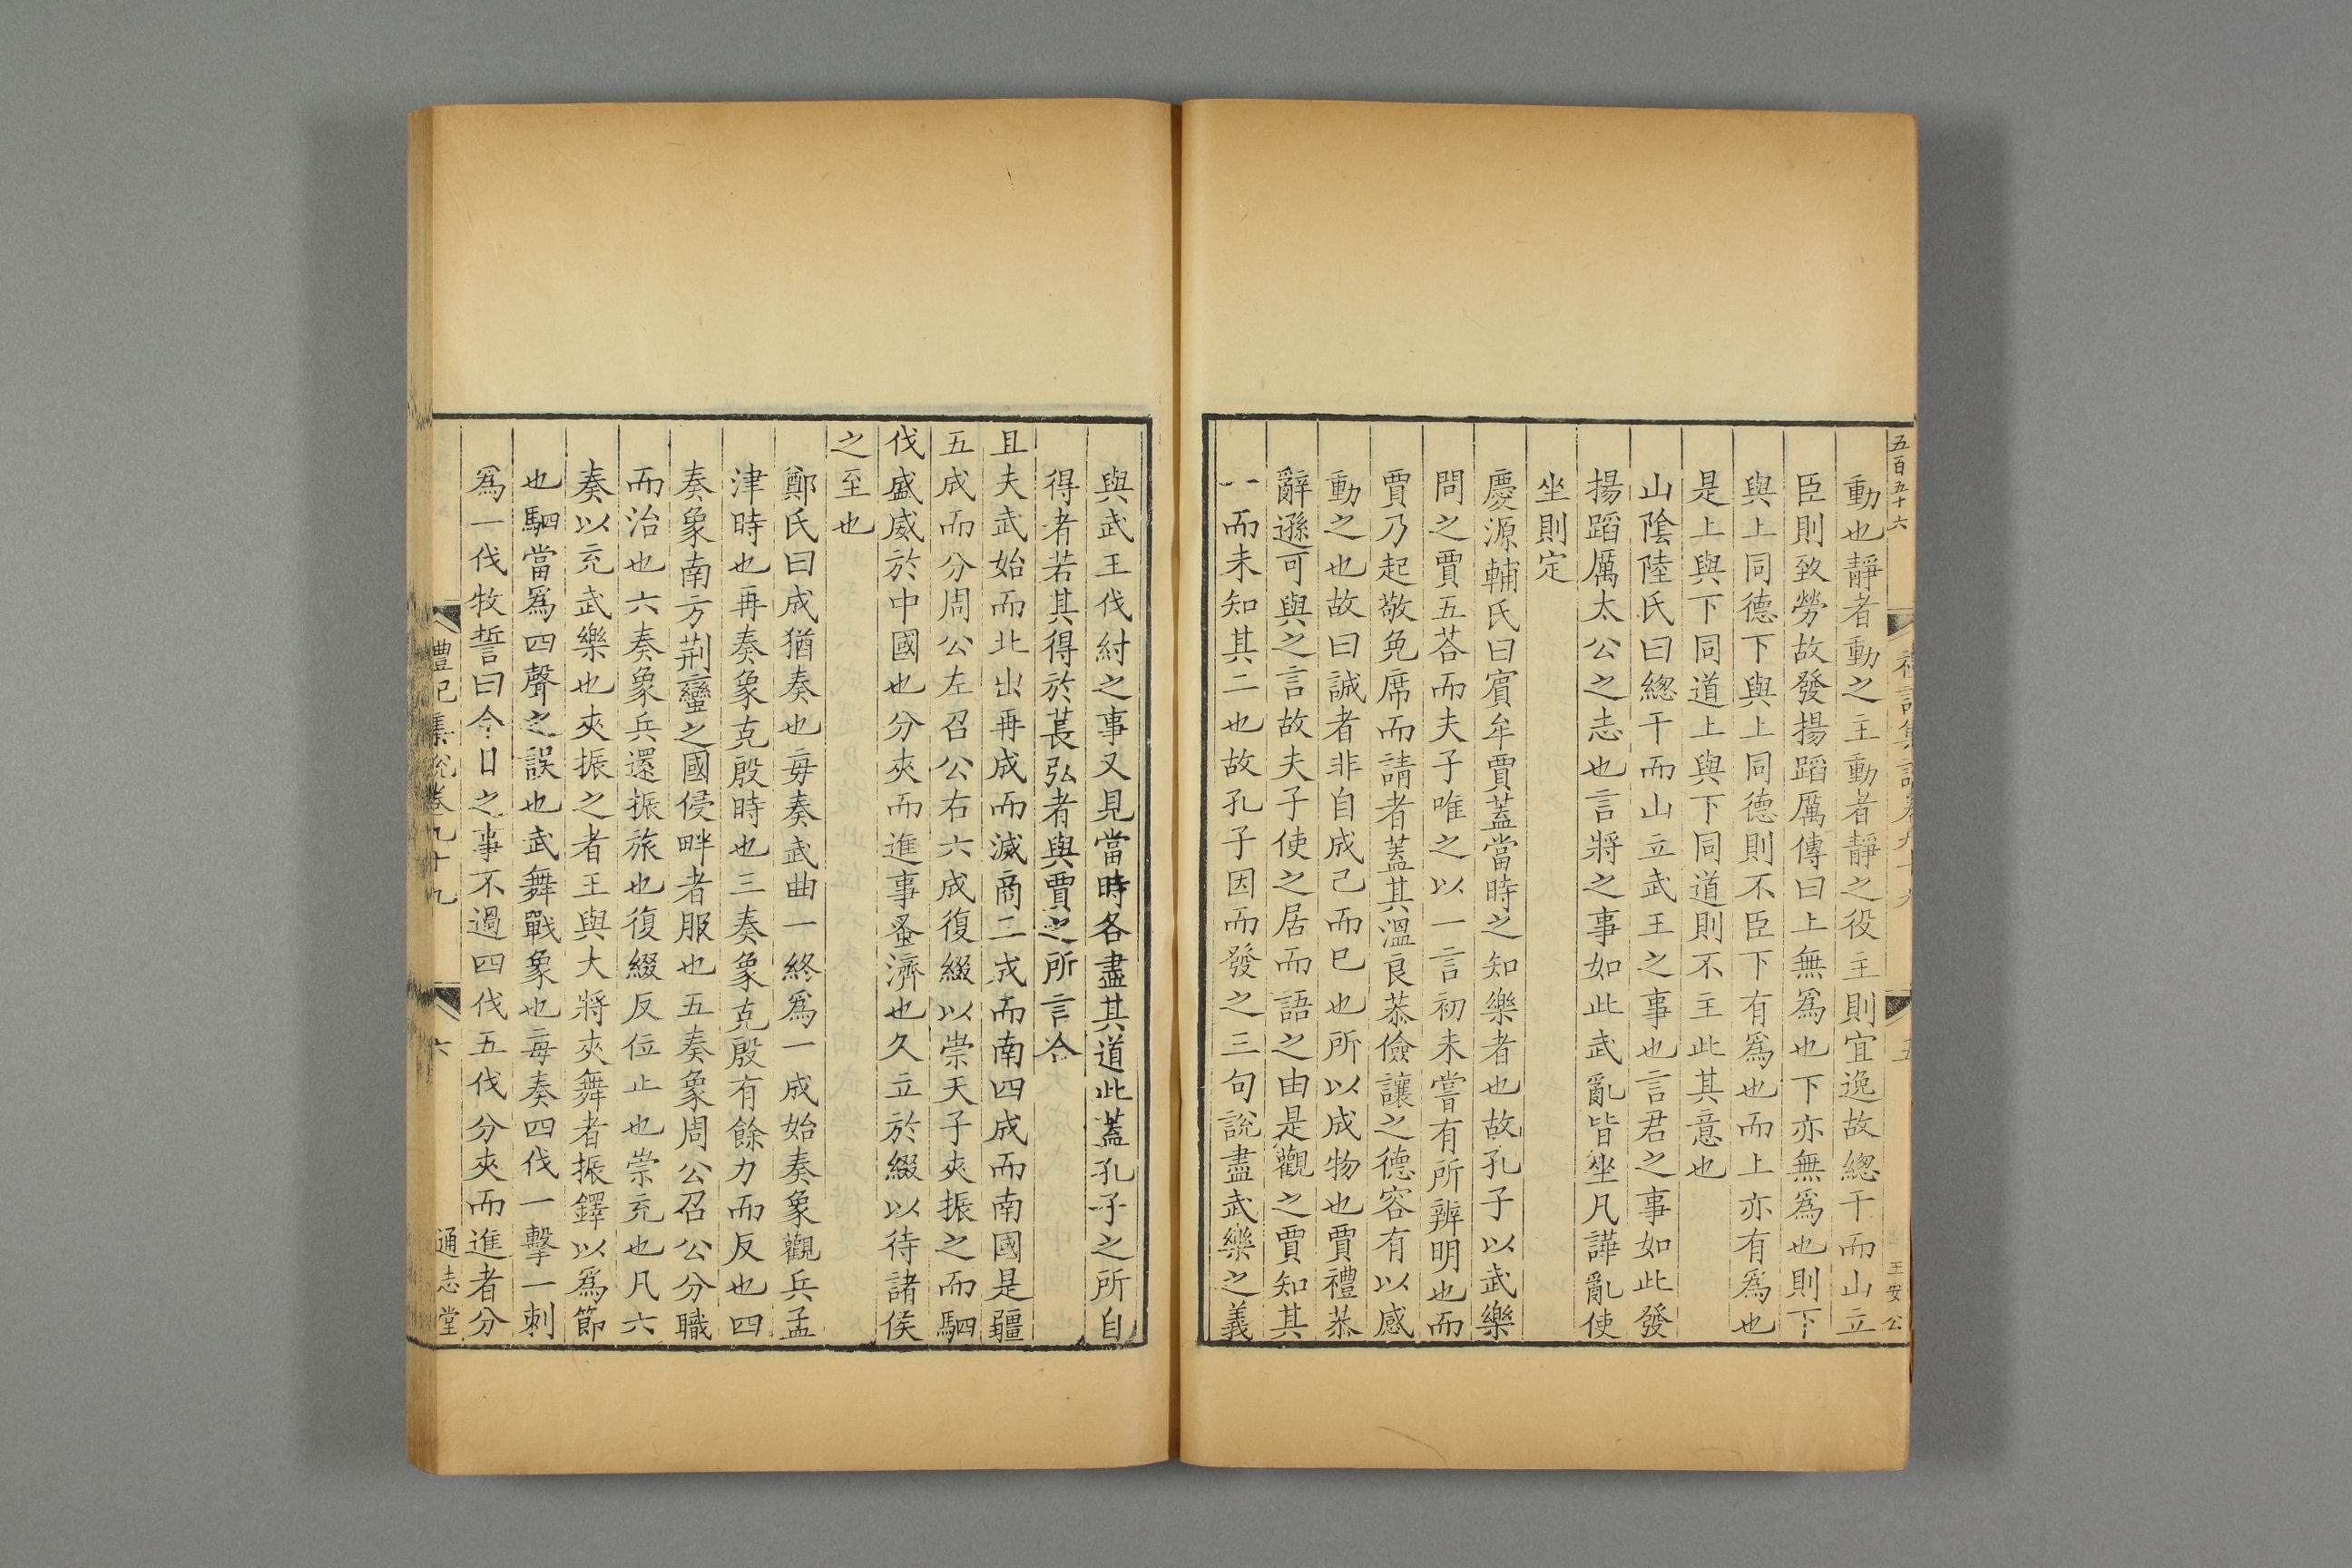 五百五十六
禮記集說卷九十九
五
王安公
動也靜者動之主動者靜之役主則宜逸故緫干而山立
臣則致勞故發揚蹈厲傳曰上無爲也下亦無爲也則下
與上同德下與上同德則不臣下有爲也而上亦有爲也
是上與下同道上與下同道則不主此其意也
山陰陸氏曰緫干而山立武王之事也言君之事如此發
揚蹈厲太公之志也言將之事如此武亂皆坐凡譁亂使
坐則定
慶源輔氏曰賔牟賈蓋當時之知樂者也故孔子以武樂
問之賈五荅而夫子唯之以一言初未嘗有所辨明也而
賈乃起敬免席而請者蓋其溫良恭儉讓之德容有以感
動之也故曰誠者非自成己而已也所以成物也賈禮恭
辭遜可與之言故夫子使之居而語之由是觀之賈知其
一而未知其二也故孔子因而發之三句說盡武樂之義
與武王伐紂之事又見當時各盡其道此蓋孔子之所自
得者若其得於萇弘者與賈之所言合
且夫武始而北出再成而滅商三成而南四成而南國是疆
五成而分周公左召公右六成復綴以崇天子夾振之而駟
伐盛威於中國也分夾而進事蚤濟也久立於綴以待諸侯
之至也
鄭氏曰成猶奏也每奏武曲一終爲一成始奏象觀兵孟
津時也再奏象克殷時也三奏象克殷有餘力而反也四
奏象南方荆蠻之國侵畔者服也五奏象周公召公分職
而治也六奏象兵還振旅也復綴反位止也崇充也凡六
奏以充武樂也夾振之者王與大將夾舞者振鐸以爲節
也駟當爲四聲之誤也武舞戰象也每奏四伐一擊一刺
爲一伐牧誓曰今日之事不過四伐五伐分夾而進者分
禮記集說卷九十九
六
通志堂